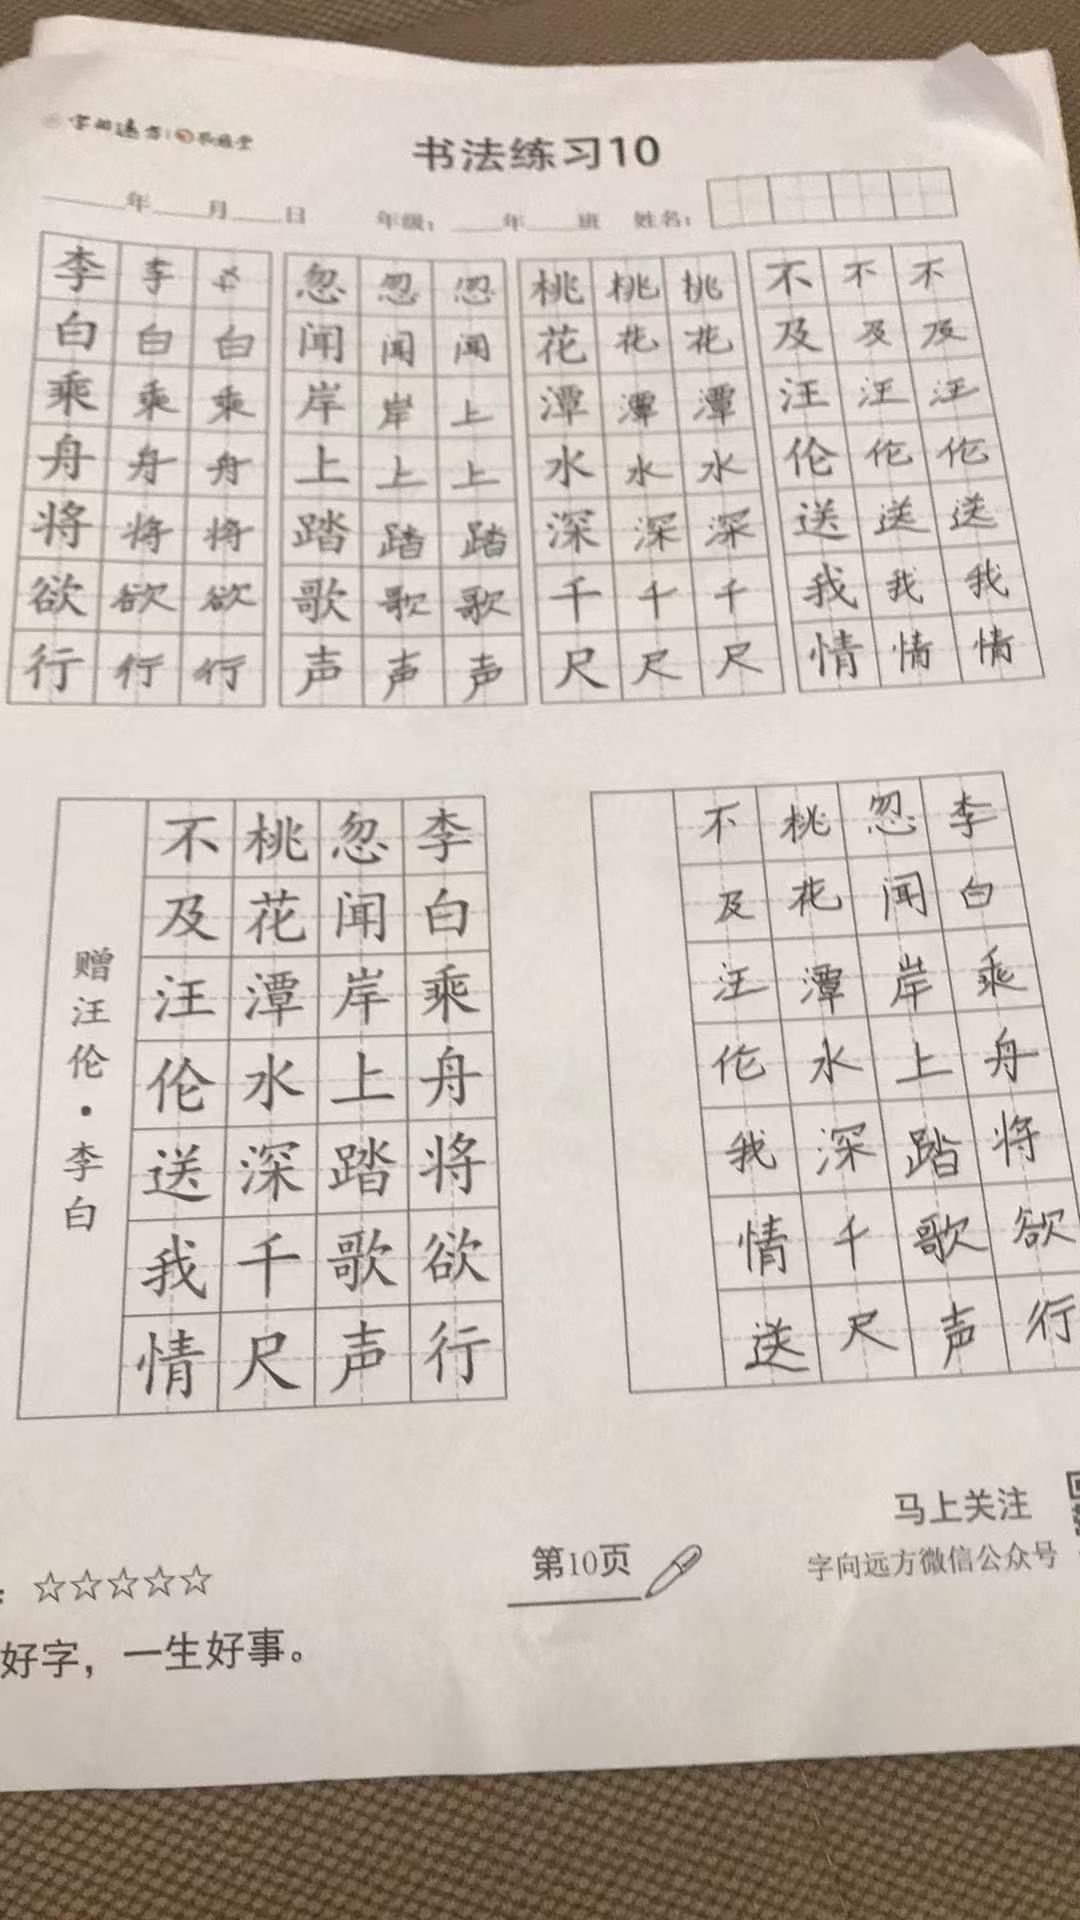 字向远方
书法练习10
年 月 日 年级： 年 班 姓名：
李 李 忽 忽 忽 桃 桃 桃 不 不 不
白 白 白 闻 闻 闻 花 花 花 及 及 及
乘 乘 乘 岸 岸 上 潭 潭 潭 汪 汪 汪
舟 舟 舟 上 上 上 水 水 水 伦 伦 伦
将 将 将 踏 踏 踏 深 深 深 送 送 送
欲 欲 欲 歌 歌 歌 千 千 千 我 我 我
行 行 行 声 声 声 尺 尺 尺 情 情 情
李白乘舟将欲行
忽闻岸上踏歌声
桃花潭水深千尺
不及汪伦送我情
赠汪伦·李白
李白乘舟将欲行
忽闻岸上踏歌声
桃花潭水深千尺
不及汪伦我情送
：☆☆☆☆☆
好字，一生好事。
第10页
马上关注
字向远方微信公众号